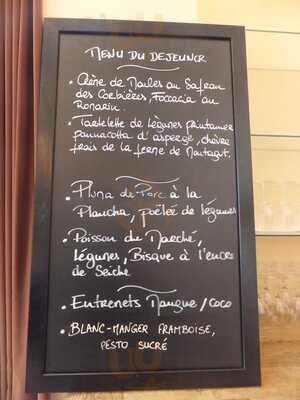 MENU DU DEJEUNER
• Crème de Moules au Safran
des Corbières, Foccacia au
Romarin.
• Tartelette de légumes printanier
pannacotta d'asperge, chèvre
frais de la ferme de Montagut.
• Pluma de Porc à la
Plancha, poêlée de légumes
• Poisson du Marché,
légumes, Bisque à l'encre
de Seiche
• Entremets Mangue/coco
• BLANC-MANGER FRAMBOISE,
PESTO SUCRÉ